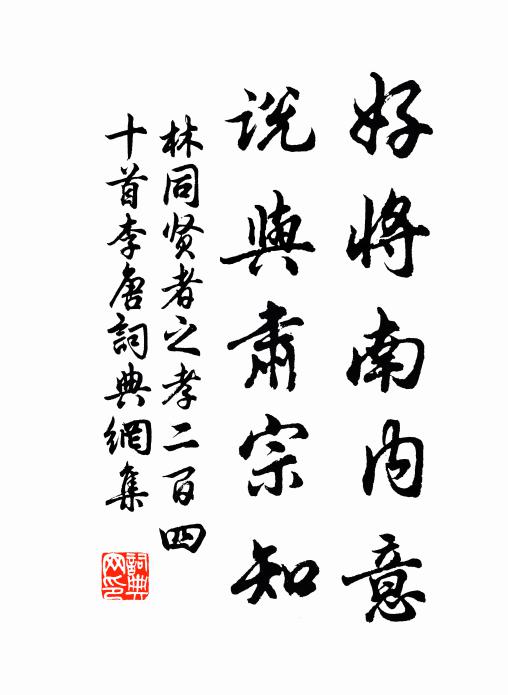 好將南内意
說與肅宗知
林同贤者之孝二百四
十首李唐詞典網集
詞典
网印